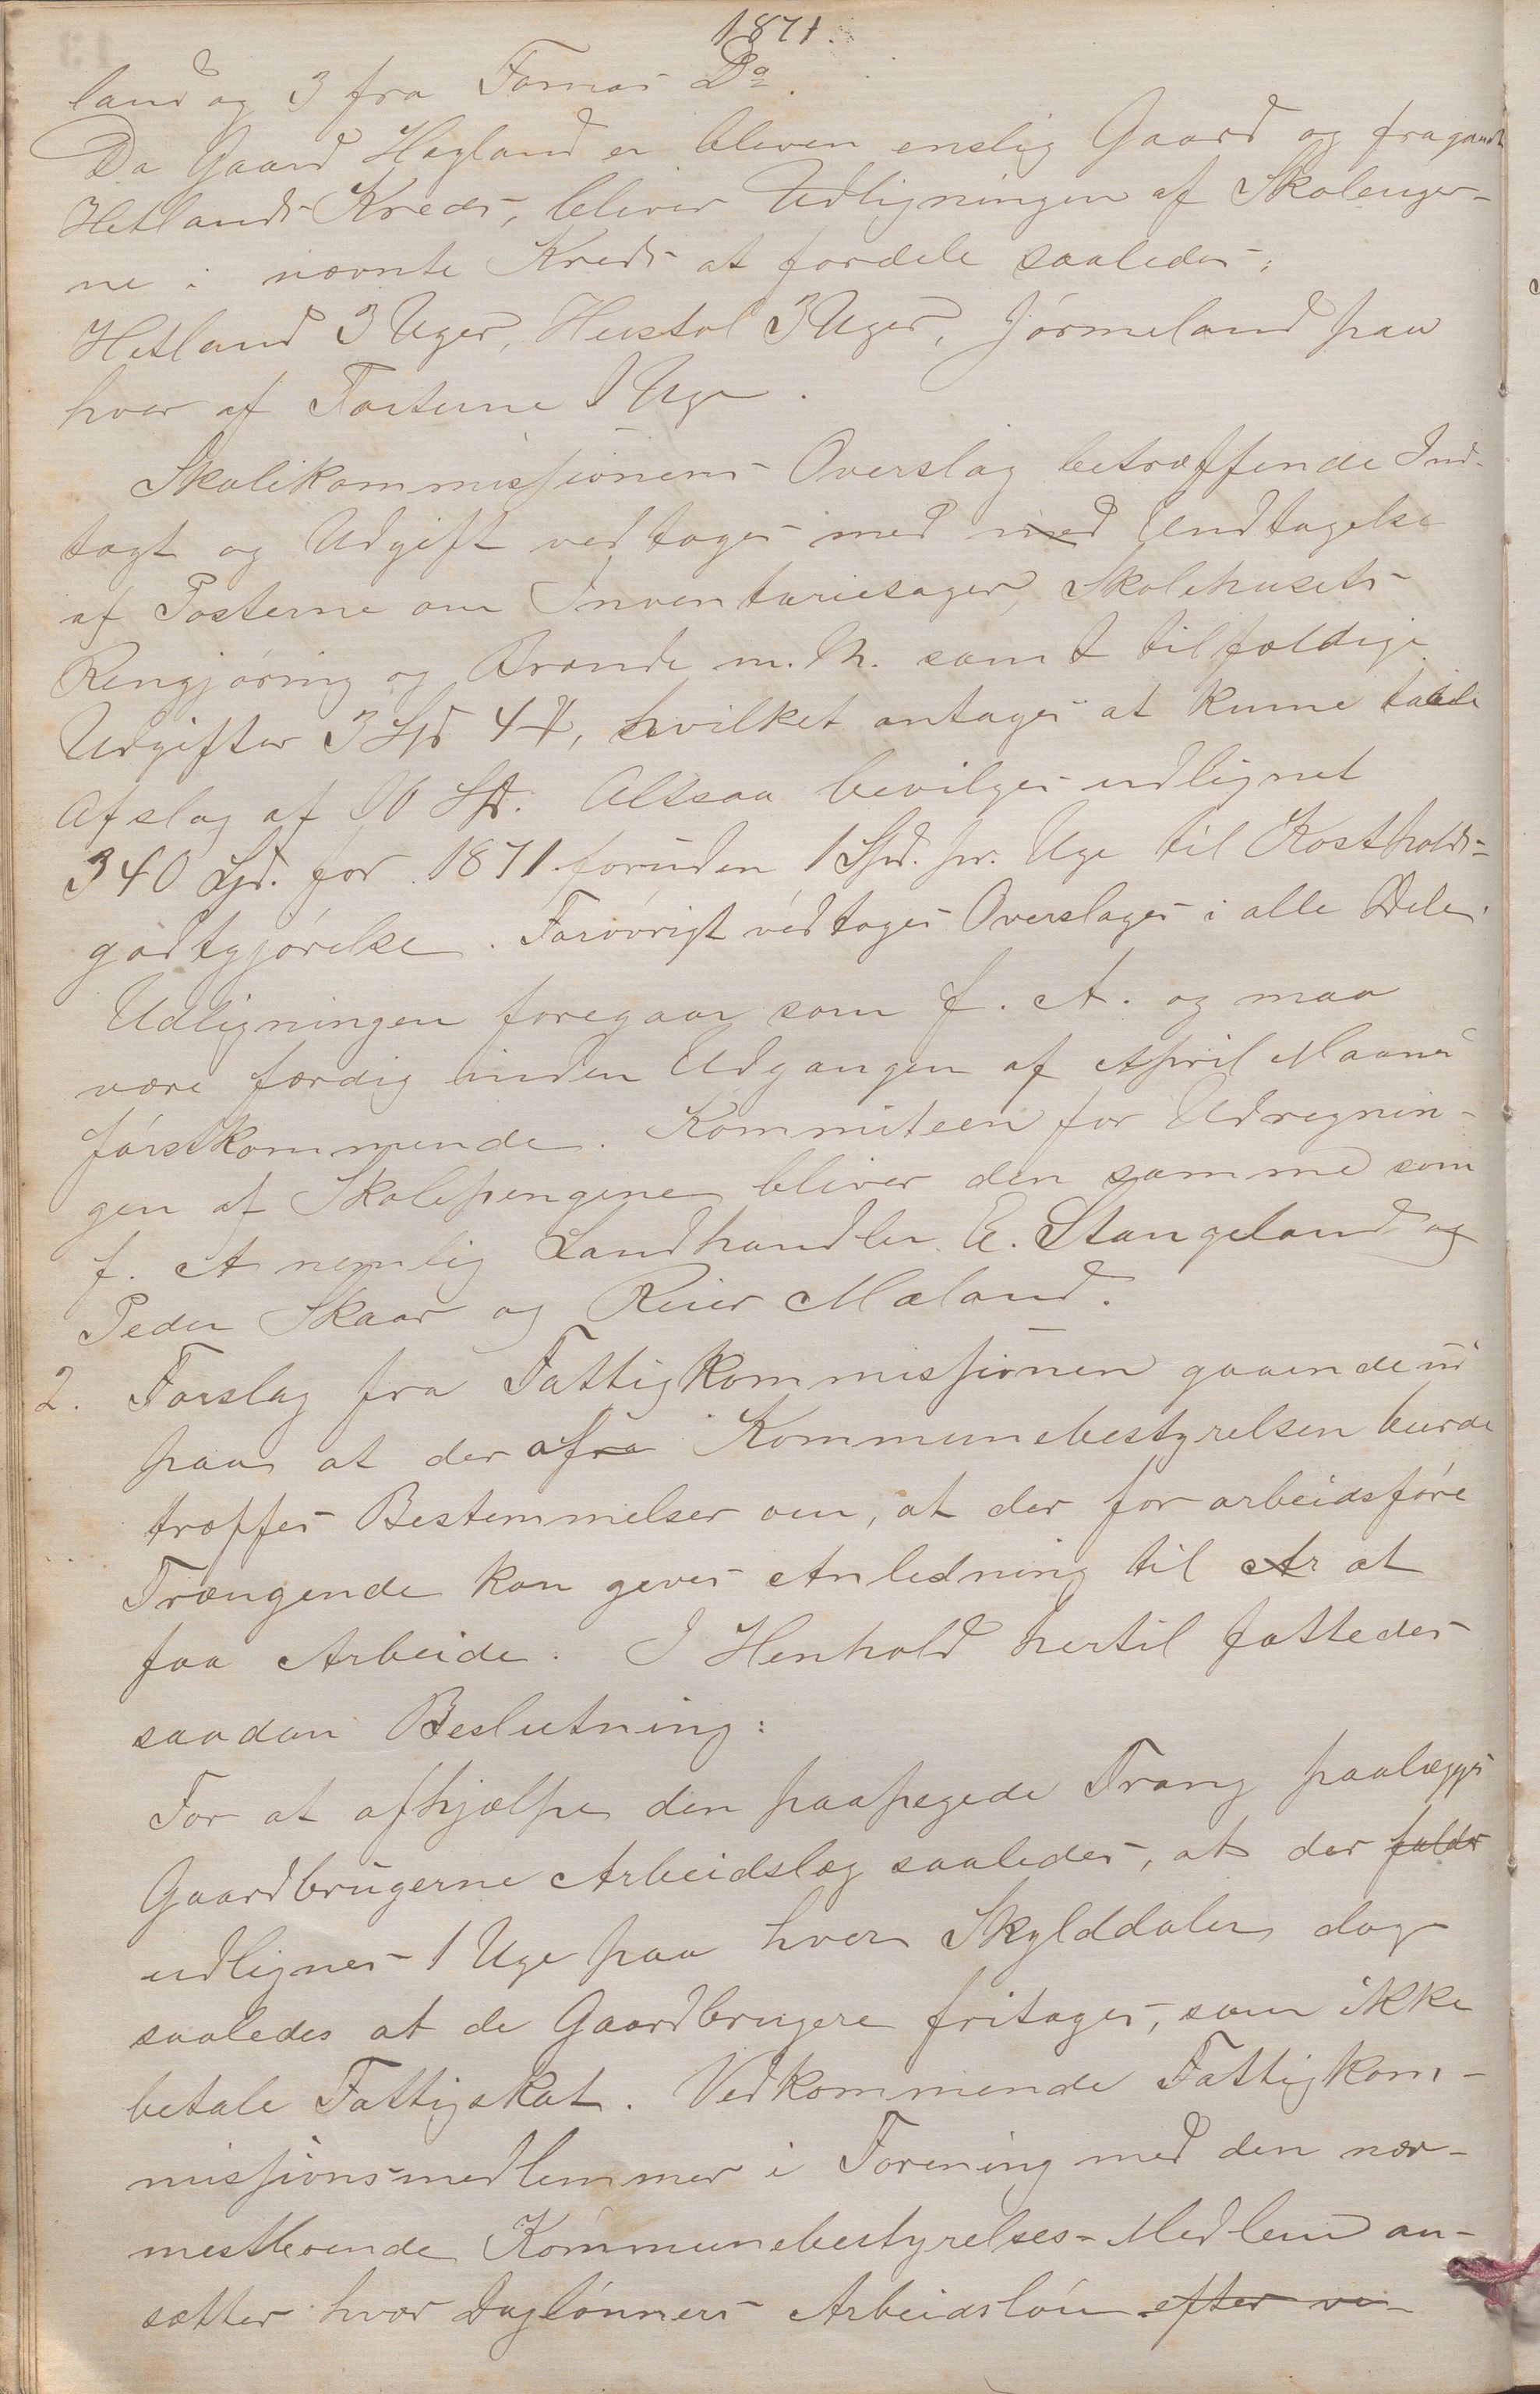 1871.
land og 3 fra Fornas Do.
Da Gaard Hagland er bleven enslig Gaard og fragaaet
Hetlands Kreds, bliver Udligningen af Skoleuger-
ne i nævnte Kreds at fordele saaledes:
Hetland 3 Uger, Heustøl 3 Uger, Jørmeland paa
hver af Parterne 1 Uge.
Skolekommissionens Overslag betræffende Ind-
tægt og Udgift vedtages med med Undtagelse
af Posterne om Inventariesager, Skolehusets
Rengjøring og Brænde m. M. samt tilfældige
Udgifter 3 Spd 4 #, hvilket antages at kunne taale
Afslag af 10 Spd. Altsaa bevilges udlignet
340 Spd. for 1871 foruden 1 Spd. pr. Uge til Kostholds-
godtgjørelse. Forøvrigt vedtages Overslaget i alle Dele.
Udligningen foregaar som f. A. og maa
være færdig inden Udgangen af April Maaned
førstkommende. Kommiteen for Udregnin-
gen af Skolepengene bliver den samme som
f. A nemlig Landhandler E. Stangeland og
Peder Skaar og Reier Mæland.
2. Forslag fra Fattigkommissionen gaaende ud
paa at der afra Kommunebestyrelsen burde
træffes Bestemmelser om, at der for arbeidsføre
Trængende kan gives Anledning til Ar at
faa Arbeide. I Henhold hertil fattedes
saadan Beslutning:
For at afhjælpe den paapegede Trang paalægges
Gaardbrugerne Arbeidslæg saaledes, at der falder
udlignes 1 Uge paa hver Skylddaler dog
saaledes at de Gaardbrugere fritages, som ikke
betale Fattigskat. Vedkommende Fattigkom-
missionsmedlemmer i Forening med den nær-
mestboende Kommunebestyrelses-Medlem an-
sætter hver Daglønners Arbeidsløn efter ve-